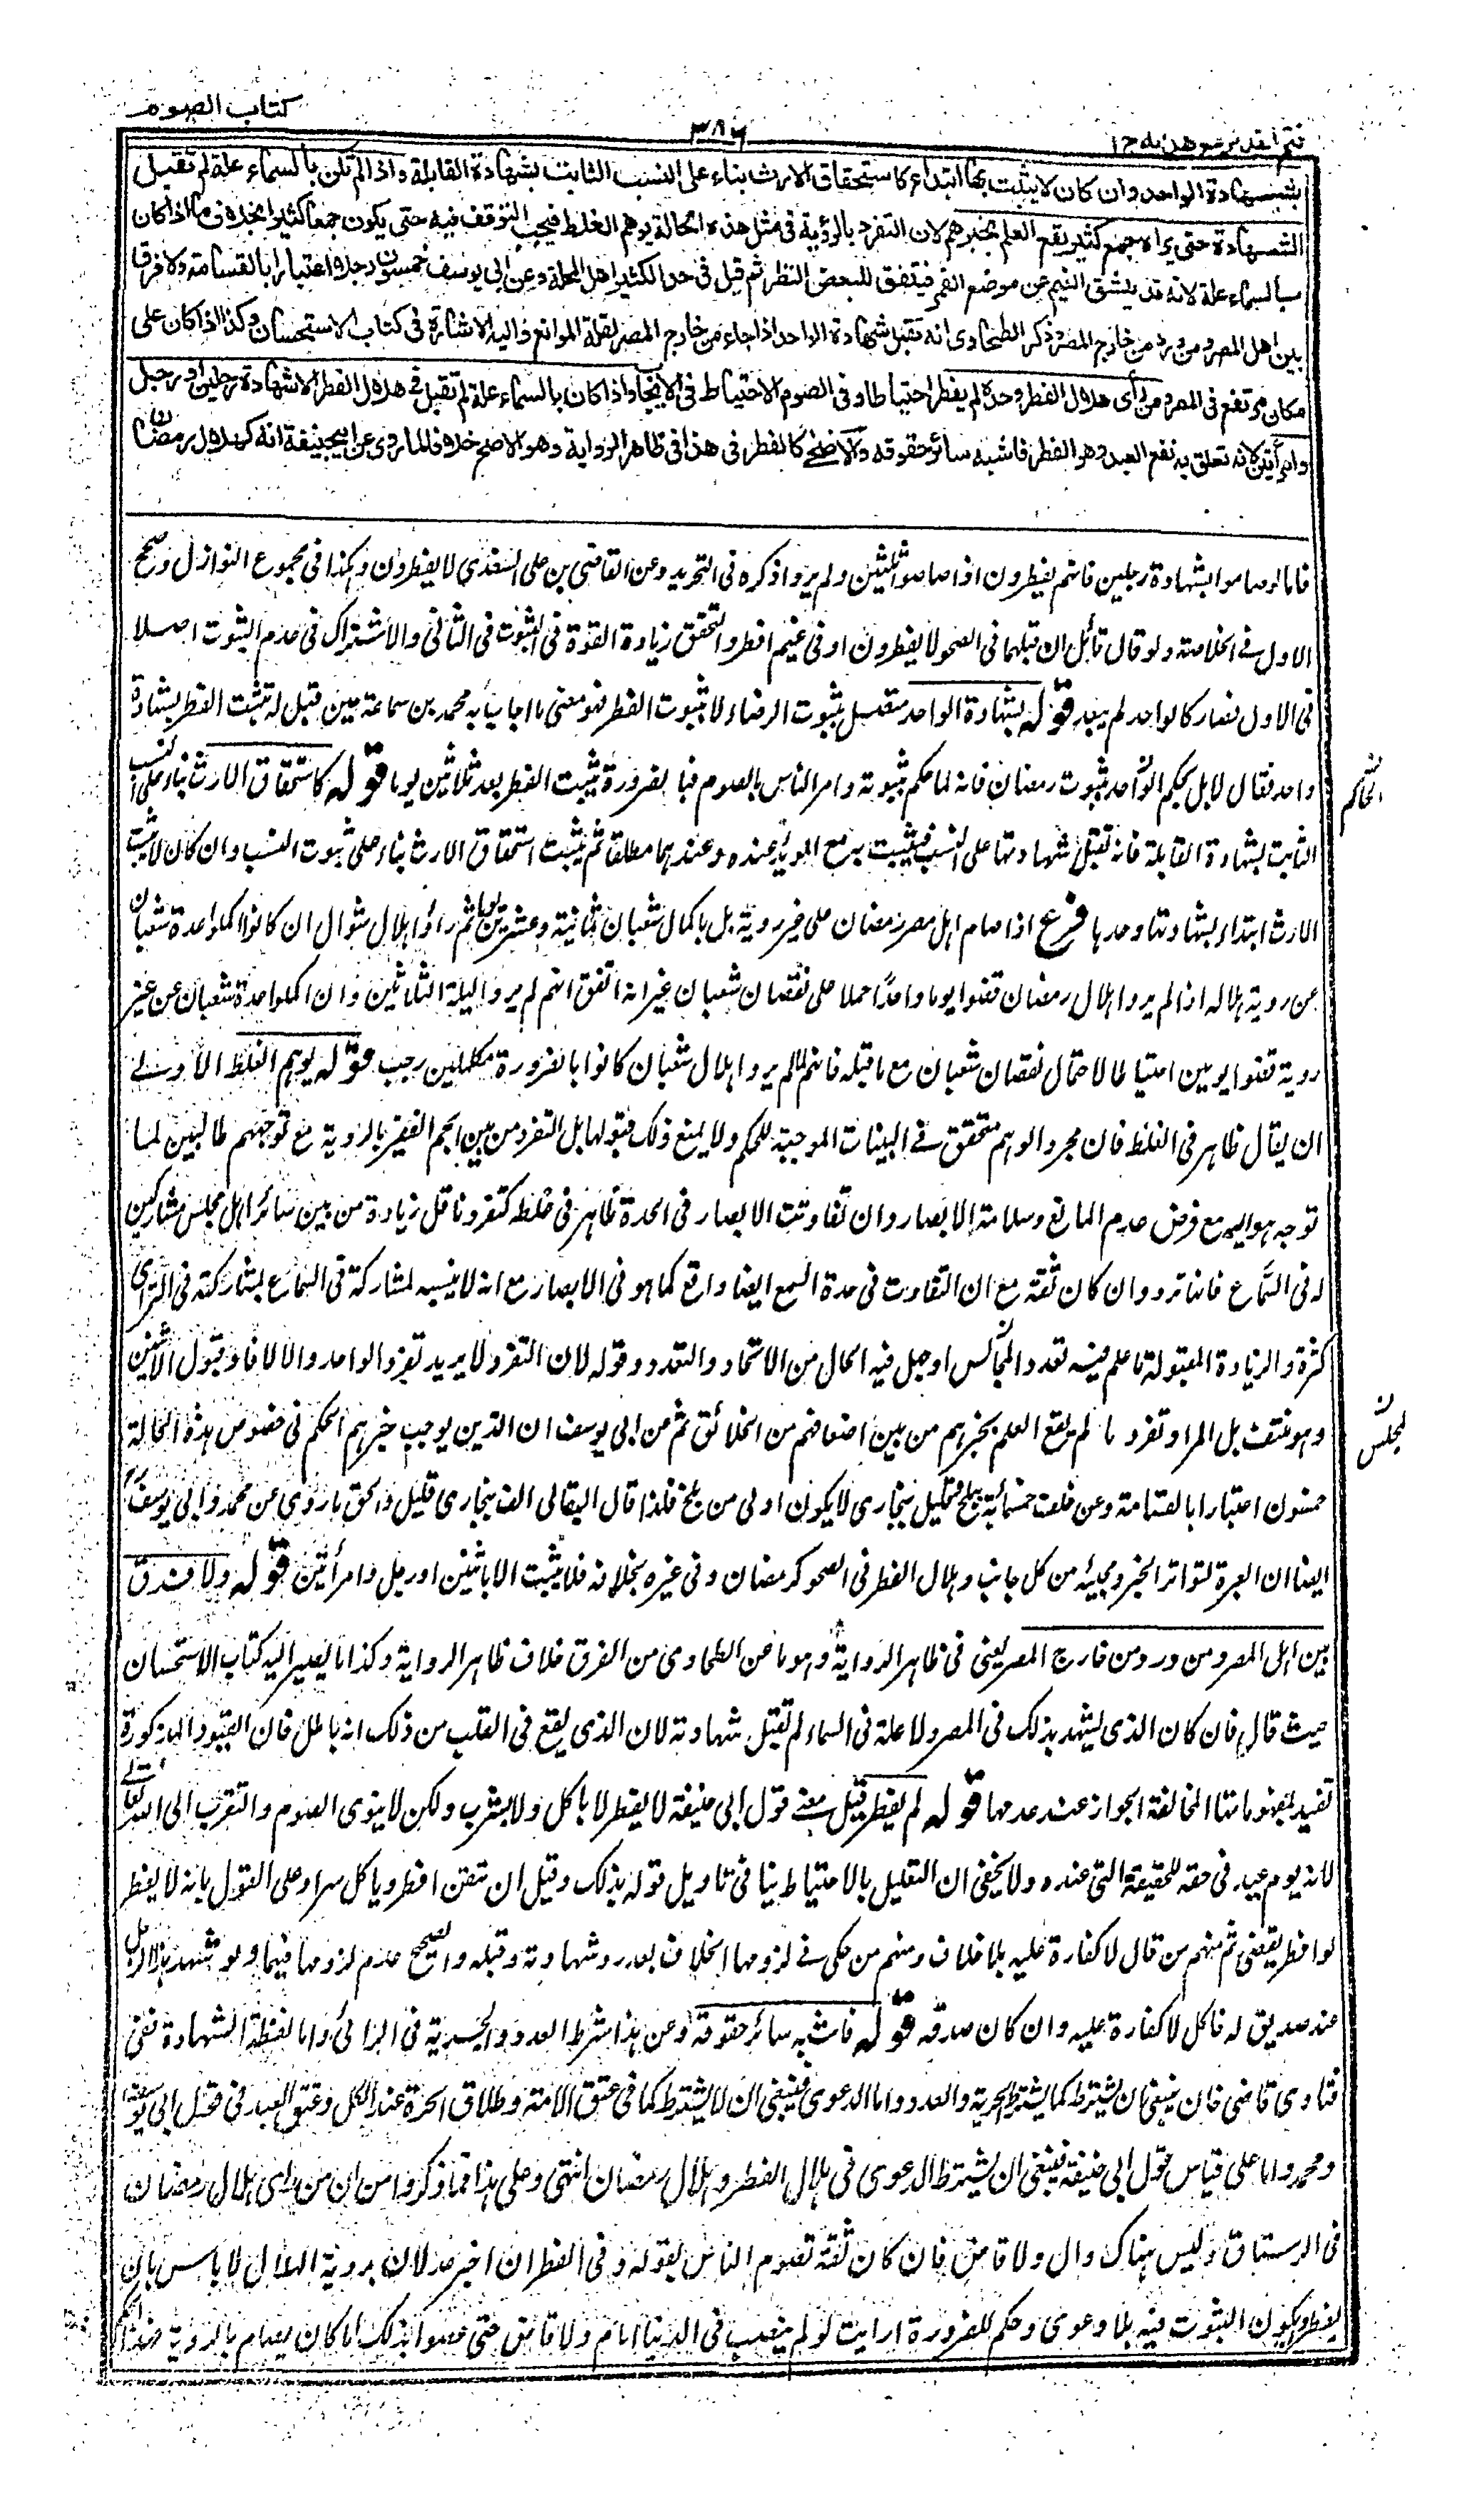 كتاب الصوم
٣٨٦
فتح القدير مع هدايه ج ١
بشهادة الواحد وان كان لا يثبت بها ابتداء كاستحقاق الارث بناء على النسب الثابت بشهادة القابلة واذا لم تكن بالسماء علة لم تقبل
الشهادة حتى يراه جمع كثير يقع العلم بخبرهم لان التفرد بالرؤية فى مثل هذه الحالة يوهم الغلط فيجب التوقف فيه حتى يكون جمعا كثيرا بخلاف ما اذا كان
بالسماء علة لانه قد ينشق الغيم عن موضع القمر فيتفق للبعض النظر ثم قيل فى حد الكثير اهل المحلة وعن ابى يوسف خمسون رجلا اعتبارا بالقسامة ولا فرق
بين اهل المصر ومن ورد من خارج المصر وذكر الطحاوى انه تقبل شهادة الواحد اذا جاء من خارج المصر لقلة الموانع واليه الاشارة فى كتاب الاستحسان وكذا اذا كان على
مكان مرتفع فى المصر ومن رأى هلال الفطر وحده لم يفطر احتياطا وفى الصوم الاحتياط فى الايجاب واذا كان بالسماء علة لم تقبل فى هلال الفطر الا شهادة رجلين او رجل
وامرأتين لانه تعلق به نفع العبد وهو الفطر فاشبه سائر حقوقه والاضحى كالفطر فى هذا فى ظاهر الرواية وهو الاصح خلافا لما روى عن ابى حنيفة انه كهلال رمضان
فاما لو صاموا بشهادة رجلين فانهم يفطرون اذا صاموا ثلثين ولم يروا ذكره فى التجريد وعن القاضى بن على السغدى لا يفطرون وهكذا فى مجموع النوازل وصحح
الاول فى الخلاصة ولو قال قائل ان قبلهما فى الصحو لا يفطرون او فى غيم افطروا لتحقق زيادة القوة فى الثبوت فى الثانى والاشتراك فى عدم الثبوت اصلا
فى الاول فصار كالواحد لم يبعد قوله بشهادة الواحد متصل بثبوت الرمضاء لا بثبوت الفطر فهو معنى ما اجاب به محمد بن سماعة حين قيل له تثبت الفطر بشهادة
واحد فقال لا بل بحكم الواحد بثبوت رمضان فانه لما حكم بثبوته وامر الناس بالصوم فبالضرورة يثبت الفطر بعد ثلاثين يوما قوله كاستحقاق الارث بناء على النسب
الثابت بشهادة القابلة فانه تقبل شهادتها على النسب فيثبت به مع المؤيد عنده وعندهما مطلقا ثم يثبت استحقاق الارث بناء على ثبوت النسب وان كان لا يثبت
الارث ابتداء بشهادتها وحدها فرع اذا صام اهل مصر رمضان على غير رؤية بل باكمال شعبان ثمانية وعشرين يوما ثم رأوا هلال شوال ان كانوا اكملوا عدة شعبان
عن رؤية هلاله اذا لم يروا هلال رمضان قضوا يوما واحدا حملا على نقصان شعبان غير انه اتفق انهم لم يروا ليلة الثلاثين وان اكملوا عدة شعبان عن غير
رؤية قضوا يومين احتياطا لاحتمال نقصان شعبان مع ما قبله فانهم لما لم يروا هلال شعبان كانوا بالضرورة مكملين رجب قوله يوهم الغلط الاولى
ان يقال ظاهر فى الغلط فان مجرد الوهم متحقق فى البينات الموجبة للحكم ولا يمنع ذلك قبولها بل التفرد من بين الجم الغفير بالرؤية مع توجههم طالبين لما
توجه هو اليه مع فرض عدم المانع وسلامة الابصار وان تفاوتت الابصار فى الحدة ظاهر فى غلطه كتفرد ناقل زيادة من بين سائر اهل مجلس مشاركين
له فى السماع فانها ترد وان كان ثقة مع ان التفاوت فى حدة السمع ايضا واقع كما هو فى الابصار مع انه لا نسبة لمشاركته فى السماع بمشاركته فى الترائى
كثرة والزيادة المقبولة ما علم فيه تعدد المجالس او جهل فيه الحال من الاتحاد والتعدد وقوله لان التفرد لا يريد تفرد الواحد والا لافاد قبول الاثنين
وهو منتف بل المراد تفرد ما لم يقع العلم بخبرهم من بين اضعافهم من الخلائق ثم عن ابى يوسف ان الذين يوجب خبرهم الحكم فى خصوص هذه الحالة
خمسون اعتبارا بالقسامة وعن خلف خمسمائة ببلخ قليل فبخارى لا يكون ادنى من بلخ فلذا قال البقالى الف ببخارى قليل والحق ما روى عن محمد وابى يوسف
ايضا ان العبرة لتواتر الخبر ومجيئه من كل جانب وهلال الفطر فى الصحو كرمضان وفى غيره بخلافه فلا يثبت الا باثنين او رجل وامرأتين قوله ولا فرق
بين اهل المصر ومن ورد من خارج المصر يعنى فى ظاهر الرواية وهو ما عن الطحاوى من الفرق خلاف ظاهر الرواية وكذا ما يشير اليه كتاب الاستحسان
حيث قال فان كان الذى يشهد بذلك فى المصر ولا علة فى السماء لم تقبل شهادته لان الذى يقع فى القلب من ذلك انه باطل فان القيود المذكورة
تفيد بمفهوماتها المخالفة الجواز عند عدمها قوله لم يفطر قيل معنى قول ابى حنيفة لا يفطر لا ياكل ولا يشرب ولكن لا ينوى الصوم والتقرب الى الله تعالى
لانه يوم عيد فى حقه للحقيقة التى عنده ولا يخفى ان التعليل بالاحتياط ينافى تاويل قوله بذلك وقيل ان تيقن افطر وياكل سرا وعلى القول بانه لا يفطر
لو افطر يقضى ثم منهم من قال لا كفارة عليه بلا خلاف ومنهم من حكى فى لزومها الخلاف بعد رد شهادته وقبله والصحيح عدم لزومها فيهما ولو شهد هذا الرجل
عند صديق له فاكل لا كفارة عليه وان كان صدقه قوله فاشبه سائر حقوقه وعن هذا شرط العدد والحرية فى الرائى واما لفظة الشهادة ففى
فتاوى قاضى خان ينبغى ان يشترط كما يشترط الحرية والعدد واما الدعوى فينبغى ان لا يشترط كما فى عتق الامة وطلاق الحرة عند الكل وعتق العبد فى قول ابى يوسف
ومحمد واما على قياس قول ابى حنيفة فينبغى ان يشترط الدعوى فى هلال الفطر وهلال رمضان انتهى وعلى هذا فما ذكروا من ان من رأى هلال رمضان
فى الرستاق وليس هناك وال ولا قاض فان كان ثقة تصوم الناس بقوله وفى الفطر ان اخبر عدلان برؤية الهلال لا باس بان
يفطروا يكون الثبوت فيه بلا دعوى وحكم للضرورة ارايت لو لم ينصب فى الدنيا امام ولا قاض حتى عصوا بذلك اما كان يصام بالرؤية فهذا الحكم
الحاكم
المجلس